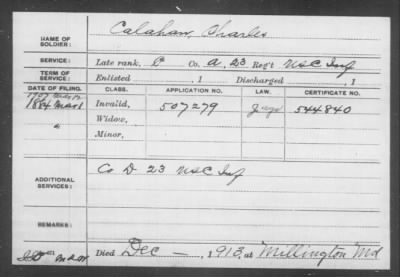 NAME OF SOLDIER: Calahan, Charles
SERVICE: Late rank, P Co. A 23 Reg't U.S.C. Inf
TERM OF SERVICE: Enlisted , 1 Discharged , 1
DATE OF FILING. CLASS. APPLICATION NO. LAW. CERTIFICATE NO.
1884 Mar 1 Invalid, 507279 544840
Widow,
Minor,
ADDITIONAL SERVICES: Co D 23 U.S.C. Inf
REMARKS:
Died Dec — , 1913, at Millington Md